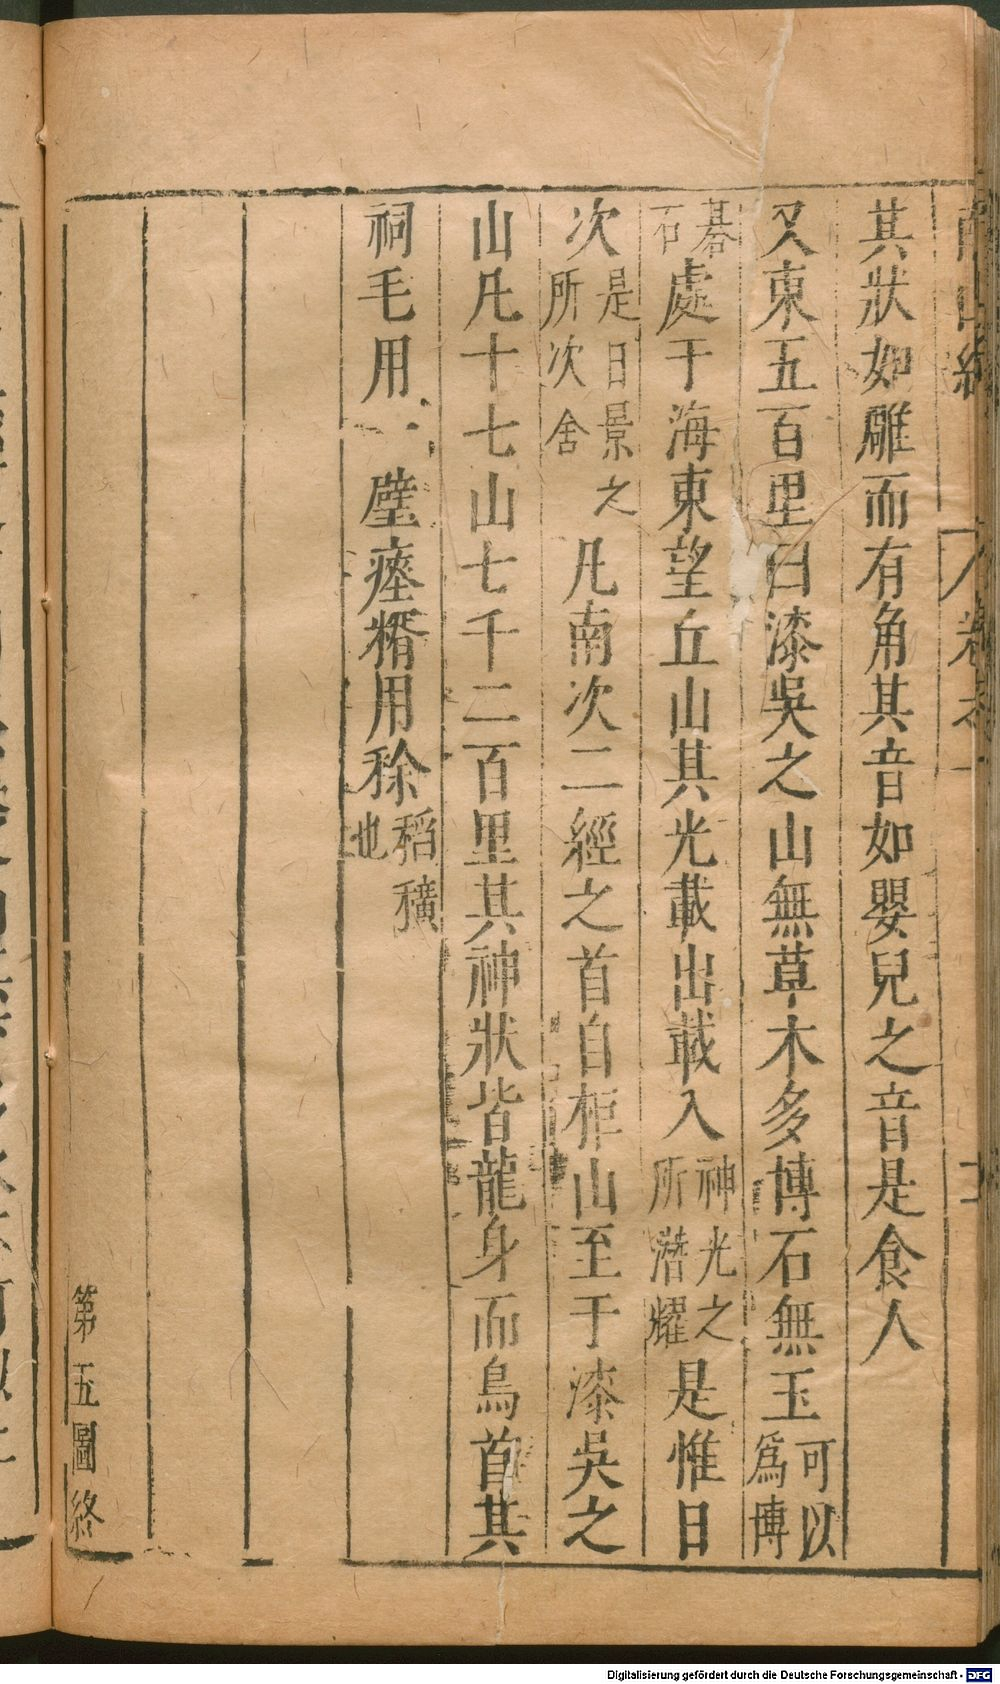 南山經 卷之一
其狀如雕而有角其音如嬰兒之音是食人
又東五百里曰漆吳之山無草木多博石無玉可以爲博
碁石處于海東望丘山其光載出載入神光之所潛耀是惟日
次是日景之所次舍凡南次二經之首自柜山至于漆吳之
山凡十七山七千二百里其神狀皆龍身而鳥首其
祠毛用一璧瘞糈用稌稻穬也
第五圖終
Digitalisierung gefördert durch die Deutsche Forschungsgemeinschaft - DFG